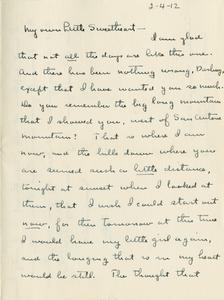 2-4-12
My own Little Sweetheart-
I am glad
that not all the days are like this one.
And there has been nothing wrong, Darling,
except that I have wanted you so much.
Do you remember the big long mountain
that I showed you, west of San Antone
mountain? That is where I am
now, and the hills down where you
are seemed such a little distance,
tonight at sunset when I looked at
them, that I wish I could start out
now, for then tomorrow at this time
I would have my little girl again,
and the longing that is in my heart
would be still. The thought that